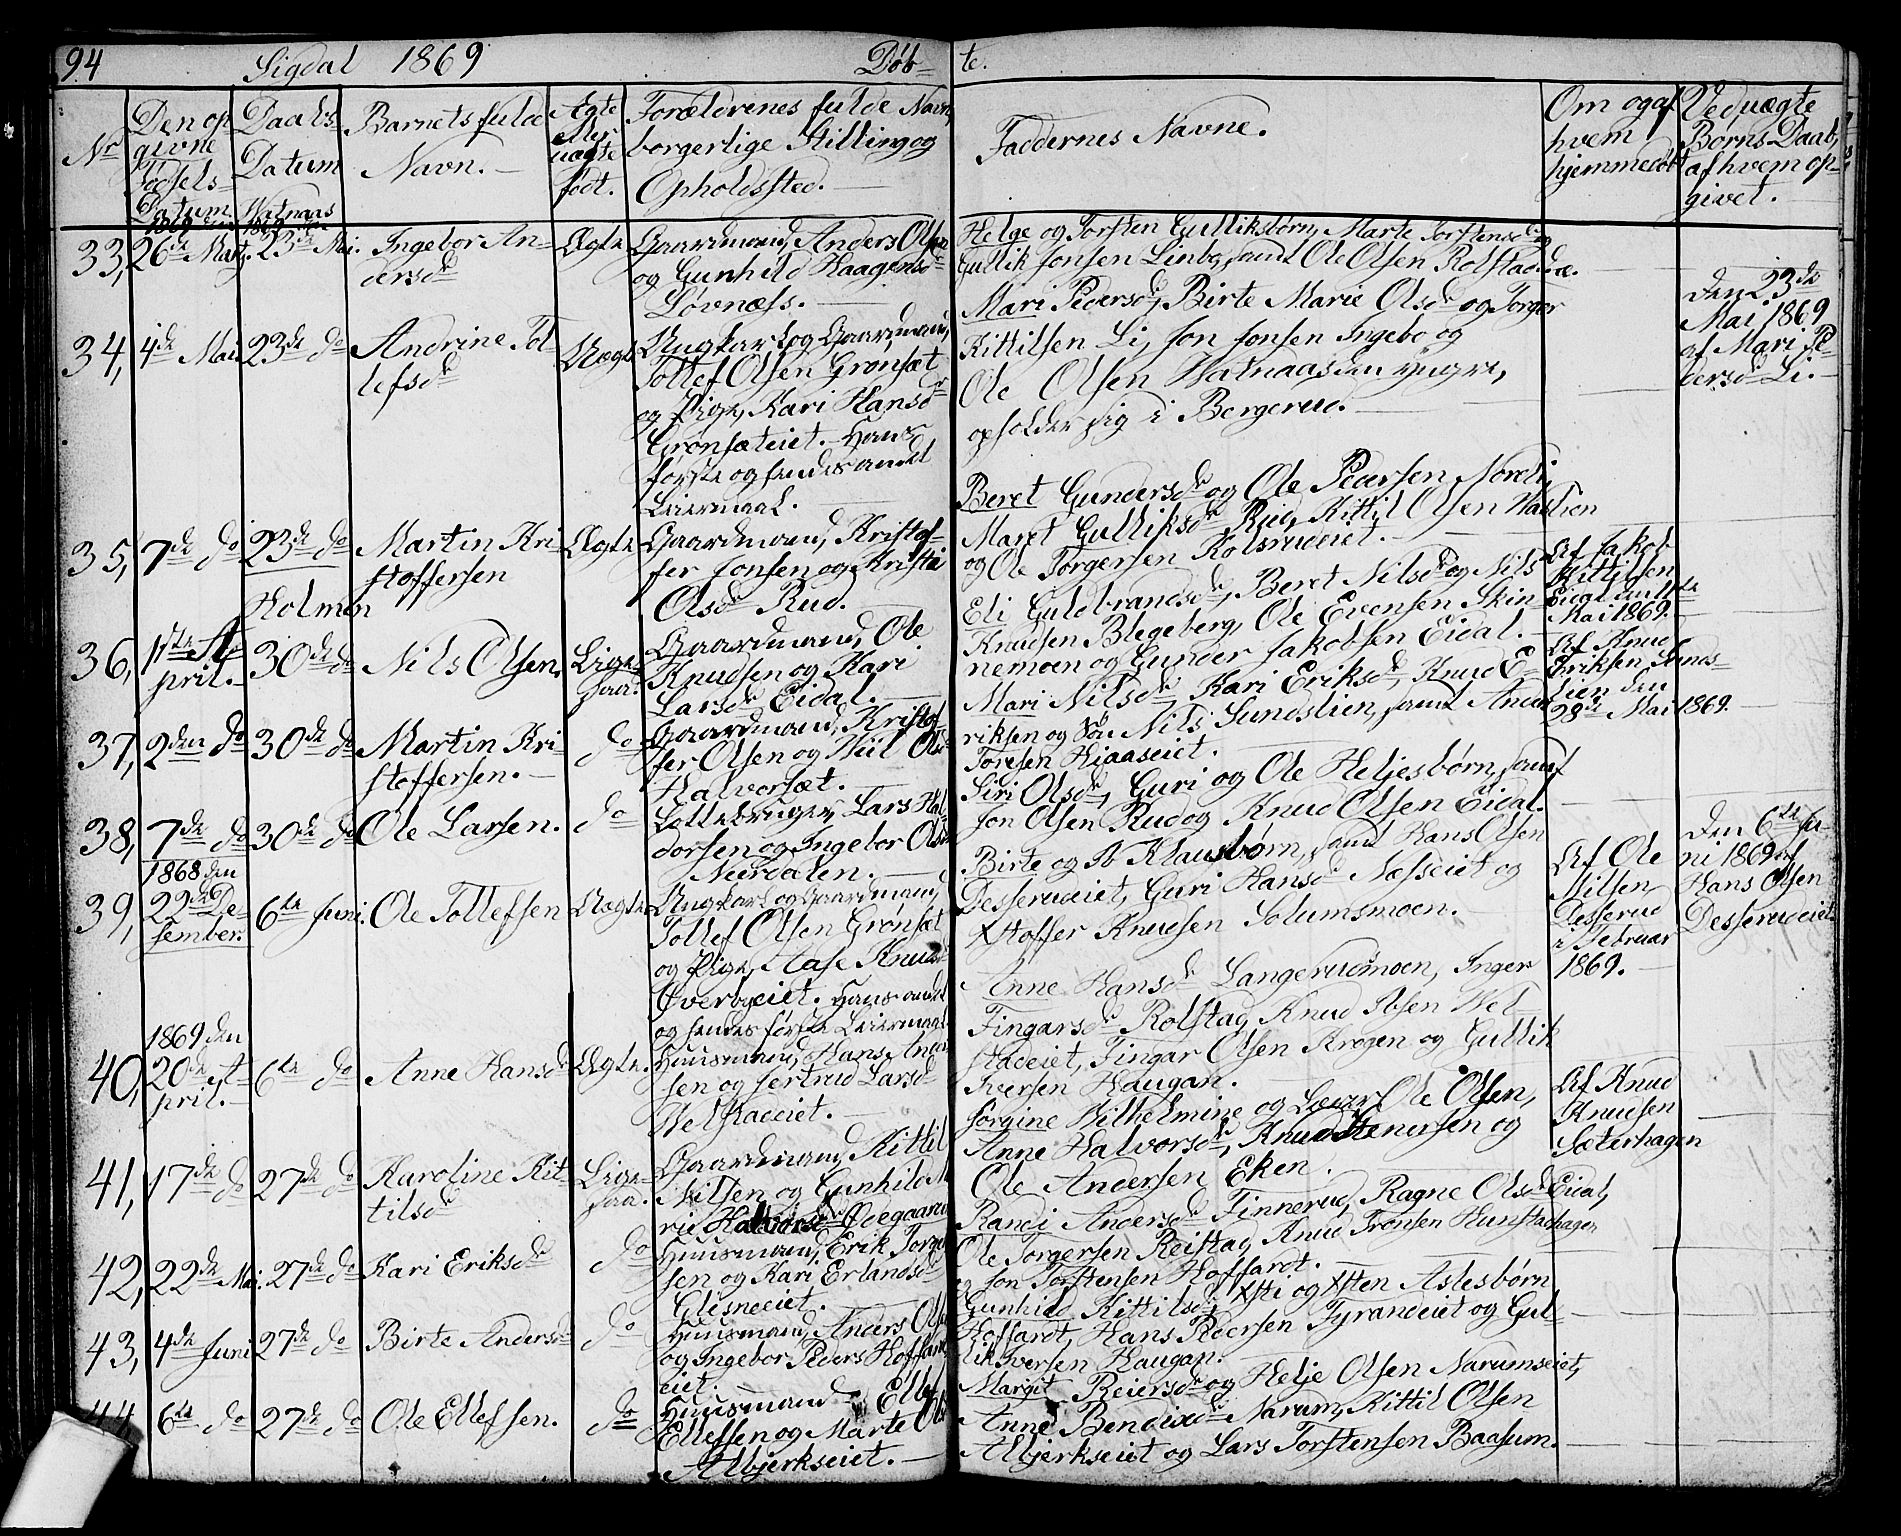 94 Sigdal 1869 Døb- te.
No
Den op
givne
Fødsels-
Datum.
Daabs-
Datum
Watnaas
Barnets fulde
Navn. —
Ægte
eller
uægte
født.
Forældrenes fulde Navn,
borgerlige Stilling og
Opholdssted. —
Faddernes Navne.
Om og af
hvem
hjemmedøbt
Ved uægte
Børns Daab,
af hvem op-
givet. —
1869 den
1869 den
33, 26de Marts. 23de Mai. Ingebor An-
dersd
Ægte
Gaardmand, Anders Olsen
og Gunhild Haagensd
Løvnæss. —
Helge og Torsten Gulliksbørn, Marte Torstensd og
Gullik Jonsen Linbo, samt Ole Olsen Rolstad
34, 4de Mai 23de do Andrine Tol-
lefsd
Uægte
Ungkarl og Gaardmand,
Tollef Olsen Grønsæt
og Pige, Kari Hansd
Grønsæteiet. Hans
første og hendes andet
Leiermaal. —
Mari Pedersd, Birte Marie Olsd og Torger
Kittilsen Li, Jon Jonsen Ingebo og
Ole Olsen Watnaas den yngre,
opholder sig i Bergerud. —
Den 23de
Mai 1869
af Mari Pe-
dersd Li. —
35, 7de do 23de do Martin Kri-
stoffersen
Ægte
Gaardmand, Kristof-
fer Jonsen og Kristi
Olsd Rud. —
Beret Gundersd og Ole Pedersen Nordli,
Maret Gulliksd Rud, Kittil Olsen
og Ole Torgersen Kolsrudeiet. —
Holmen
36, 11te A-
pril. —
30de do Nils Olsen. Lige-
saa.
Gaardmand, Ole
Knudsen og Kari
Larsd Eidal. —
Eli Guldbrandsd, Beret Nilsd og Nils
Knudsen Blegeberg, Ole Evensen Skin-
nemoen og Gunder Jakobsen Eidal. —
Af Jakob
Kittilsen
Eidal den 11te
Mai 1869.
37, 2den do 30de do Martin Kri-
stoffersen. —
do
Gaardmand, Kristof-
fer Olsen og Kiil Ols
Halvorsæt. —
Mari Nilsd, Kari Eriksd, Knud E-
riksen og Søn Nils Sundslien, samt
Toresen Hiaaseiet.
Af Knud
Eriksen Sunds-
lien den
28de Mai 1869. —
38, 7de do 30de do Ole Larsen. do
Lottebruger, Lars Hal-
dorsen og Ingebor Olsd
Nerdalen. —
Siri Olsd, Guri og Ole Heljesbørn, samt
Jon Olsen Rud og Knud Olsen Eidal.
1868 den
39, 22de De-
sember.
6te Juni. Ole Tollefsen Uægte
Ungkarl og Gaardmand,
Tollef Olsen Grønsæt
og Pige, Aase Knudsd
Øverbyeiet. Hans andet
og hendes første Leiermaal.
Birte og Ib Klausbørn, samt Hans Olsen
Desserudeiet, Guri Hansd Næsseiet og
Xstoffer Knudsen Solumsmoen.
Af Ole
Nilsen
Desserud
i Februar
1869. —
Den 6te Ju-
ni 1869 af
Hans Olsen
Desserudeiet
1869 den
40, 20de A-
pril. —
6te do Anne Hansd Ægte.
Huusmand, Hans
sen og Jertrud Larsd
Welstadeiet. —
Anne Hansd Langerudmoen, Inger
Fingarsd Rolstad, Knud Ibsen Wel-
stadeiet, Fingar Olsen Krogen og Gullik
Iversen Haugan. —
41, 17de do 27de do Karoline Kit-
tilsd
Lige-
saa.
Gaardmand, Kittil
Nilsen og Gunhild Ma-
rie Halvorsd Ødegaard
Jørgine Wilhelmine og Ole Olsen,
Anne Halvorsd, Knud Stenersen og
Ole Andersen Eken.
Af Knud
Knudsen
Sæterhagen
42, 22de Mai. 27de do Kari Eriksd do
Huusmand, Erik Torger-
sen og Kari Erlandsd
Glesneeiet. —
Randi Andersd Finnerud, Ragne Olsd Eidal,
Ole Torgersen Reistad, Knud Tronsen Hunstadhagen
og Jon Torstensen Hoffardt. —
43, 4de Juni 27de do Birte Andersd do
Huusmand, Anders Olsen
og Ingebor Peders Hoffardt-
eiet.
Gunhild Kittilsd, Xsti og Xsten Aslesbørn
Hoffardt, Hans Pedersen Tyrandeiet og Gul-
lik Iversen Haugan.
44 6te do 27de do Ole Ellefsen. do
Huusmand, Ellef
Ellefsen og Marte Ols
Albjerkseiet. —
Margit Reiersd og Helje Olsen Narumseiet,
Anne Bendixd Narum, Kittil Olsen
Albjerkseiet og Lars Torstensen Baasum.